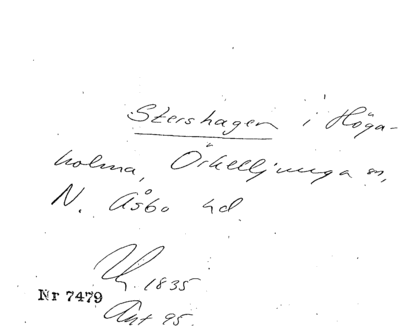 Stershagen i Höga-
holma, Örkelljunga sn,
N. Åsbo hd.
1835
Nr 7479
Ant 95.